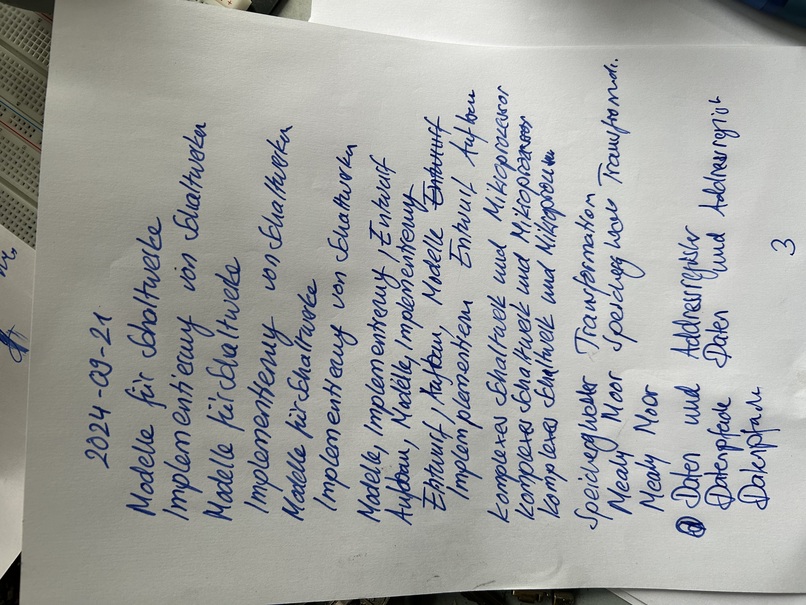 2024-09-21
Modelle für Schaltwerke
Implementierung von Schaltwerken
Modelle für Schaltwerke
Implementierung von Schaltwerken
Modelle für Schaltwerke
Implementierung von Schaltwerken
Modelle, Implementierung, Entwurf
Aufbau, Modelle, Implementierung
Entwurf, Aufbau, Modelle Entwurf
Implemplementieren Entwurf Aufbau
Komplexes Schaltwerk und Mikroprozessor
Komplexes Schaltwerk und Mikroprozessor
Komplexes Schaltwerk und
Speicherglieder Transformation
Mealy Moor
Mealy Moor
Daten und Addressregister
Datenpfade Daten und
Datenpfade
3